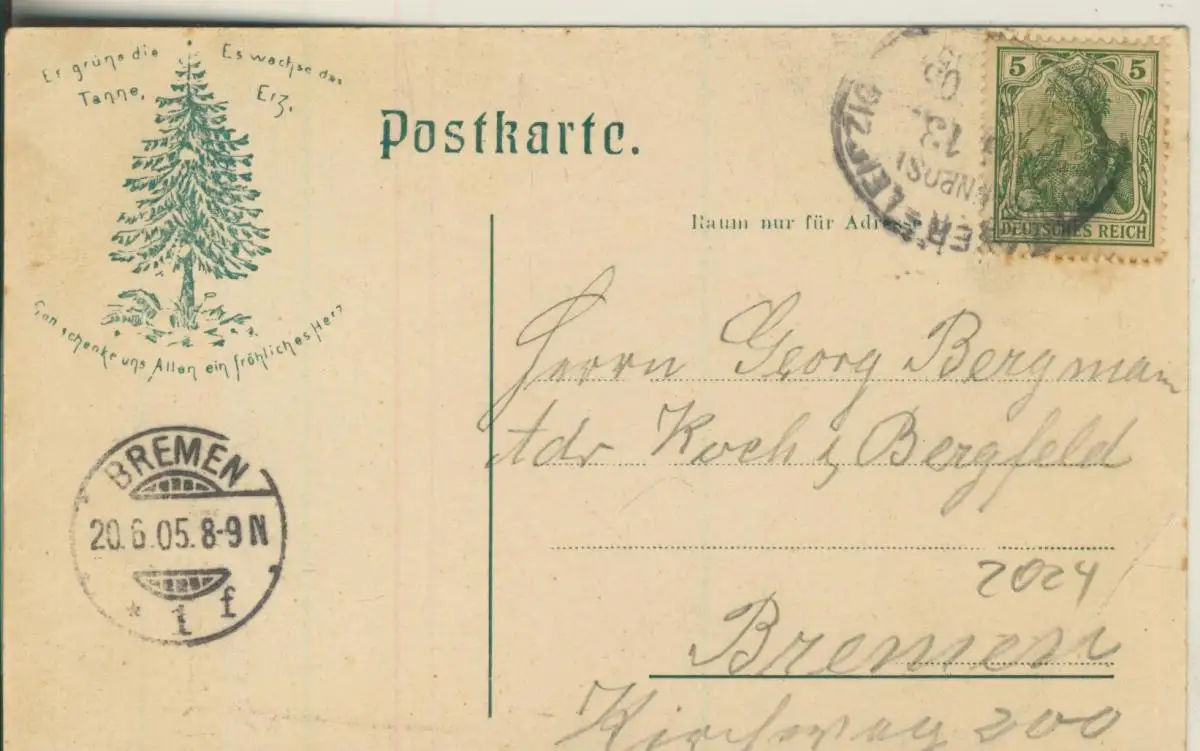 Er grüne die Tanne,
Es wachse das Erz,
Gott schenke uns Allen ein fröhliches Herz
Postkarte.
Raum nur für Adresse
5 5
DEUTSCHES REICH
13.
05
Herrn Georg Bergmann
Adr Koch & Bergfeld
2024
Bremen
Kirchweg 200
BREMEN
20.6.05.8-9N
* 1 f